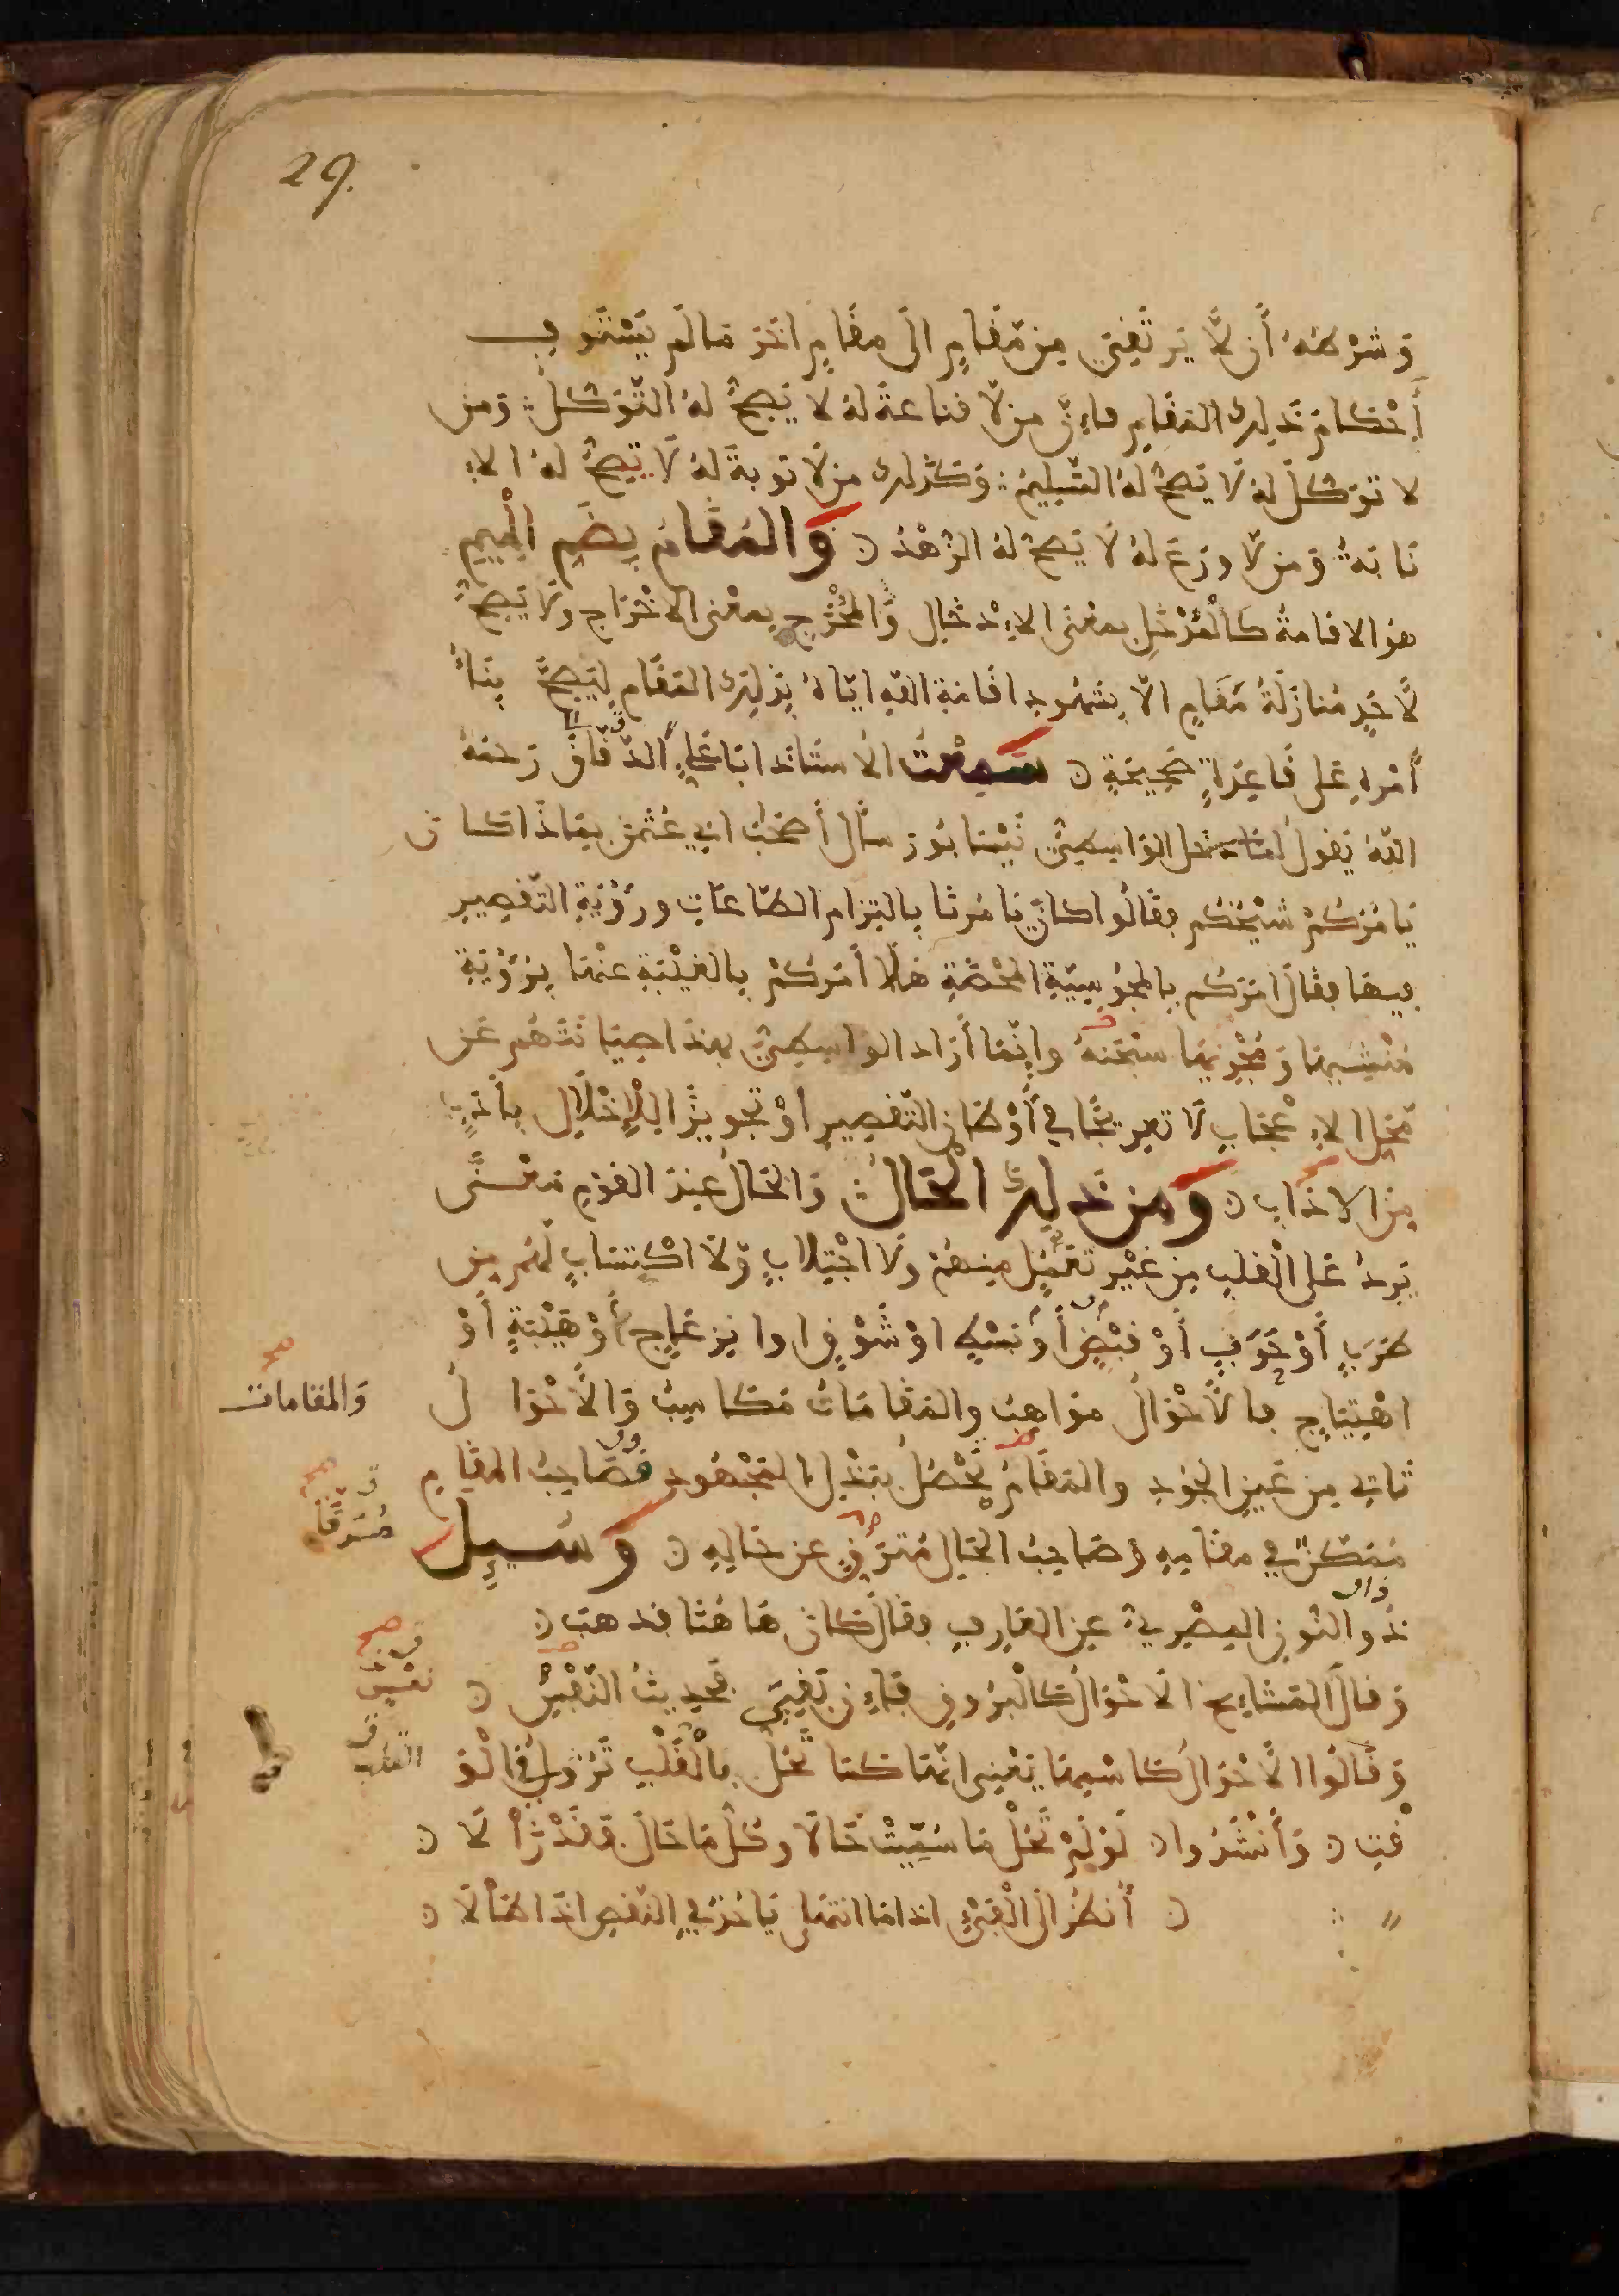 29.
وَشَرْطُهُ أَن لَّا يَرْتَقِىَ مِن مَّقَامٍ الَى مقَامٍ اخَرَ مَا لَم يَسْتَوفِ
أَحْكَامَ ذَلِكَ المَقَامِ فَإِنَّ من لا قناعةَ لهُ لا يَصِحُّ لهُ التَّوَكُّلُ وَمن
لا تَوَكُّلَ لهُ لَا يَصِحُّ لهُ التَّسْلِيمُ وَكَذَلك من لَا توبةَ لهُ لَا تَصِحُّ لهُ الاِ
نَابَةُ وَمن لا وَرَعَ لهُ لا يَصِحُّ لهُ الزُّهْدُ وَالمُقَامُ بِضَمِ الْمِيمِ
هو الاقامةُ كَالْمُدْخَلِ بمعْنَى الاِدْخَالِ وَالمُخْرَجِ بِمعْنى الاخْرَاج ولَا يَصِحُّ
لَّاحَدٍ مُنَازَلَةُ مَقَامٍ الَّا بِشهُودِ اقَامَةِ اللهِ ايَّاهُ بِذَلِكَ المَقَامِ لِيَصِحَّ بِنَاءُ
أَمْرِهِ عَلى قَاعِدَةٍ صَحِيحَةٍ سَمِعْتُ الاُستَاذ ابَا عَلِيٍّ الدَّقَّاق رَحمَهُ
اللهُ يَقولُ لمَّا دخل الوَاسِطِيُّ نَيْسَابُورَ سأَل أَصْحَٰبَ ابِي عُثمٰنَ بِمَاذَا كَانَ
يَامُرُكُمْ شَيْخُكُم فقالُوا كَانَ يَامُرنَا بِالتِزَامِ الطَّاعَاتِ ورُؤْيَةِ التَّقصِيرِ
فِيهَا فقالَ امَرَكُم بالمَجُوسِيَّةِ المَحْضَةِ هَلَّا أَمَرَكُمْ بِالغَيْبَةِ عنْهَا بِرُؤْيَةِ
مُنْشِيهَا وَمُجْرِيهَا سبْحَٰنَهُ وإِنَّمَا أَرَاد الوَاسِطِيُّ بهَذَا صِيَانَتَهُم عَن
مَحَلِّ الاِعْجَابِ لَا تعرِيجًا فِي أَوْطَانِ التَّقصِيرِ أَوْ تجوِيزًا لِلْإِخْلَالِ بِأَدَبٍ
مِنَ الادَاب وَمِن ذَلِكَ الْحَالُ وَالحَالُ عِندَ القَوْمِ مَعْنًى
يَرِدُ عَلى الْقلبِ مِن غَيْرِ تَعَمُّلٍ مِنهُمْ ولَا اجْتِلَابٍ وَّلَا اكْتِسَابٍ لَهُم مِن
طَرَبٍ أَوْ حَزَنٍ أَوْ قَبْضٍ أَوْ بَسْطٍ اوْ شَوْقٍ او انزِعَاجٍ أَوْ هَيْبَةٍ أَوْ
اهْتِيَاجٍ فالأَحْوَالُ مَوَاهِبُ والمَقَامَاتُ مَكَاسِبُ وَالأَحْوَالُ
والمقامات
صح
تَاتِى مِن عَينِ الجُودِ والمَقَامُ تَحْصُلُ بِبَذْلِ المَجْهُودِ فصَاحِبُ المقَامِ
مُتَمَكِّنٌ فِي مقامِهِ وَصَاحِبُ الحَالِ مُتَرَقٍّ عن حَالِهِ وَسُيِلَ
ذُو النُّونِ المِصْرِيُّ عنِ العَارِفِ فقالَ كَانَ هَا هُنَا فذهبَ
وَقالَ المَشَايِخُ الاَحْوَالُ كَالْبُرُوقِ فَاِن بَقِيَ فَحَدِيثُ النَّفْسِ
صح
نفس
وَقَالُوا الأَحْوَالُ كَاسْمِهَا يَعْنِى انَّهَا كمَا تَحُلُّ بِالْقَلْبِ تَزُولُ فِي الْوَ
القلب
قْتِ وَأَنْشَدُوا لَوْ لَمْ تَحُلْ مَا سُمِّيَتْ حَالَا وكُلُّ مَا حَالَ فَقَدْ زَالَا
أُنظُرْ الَى الْفَيْءِ اذا مَا انتَهَى يَاخُذُ فِي النَّقصِ اذَا طَالَا